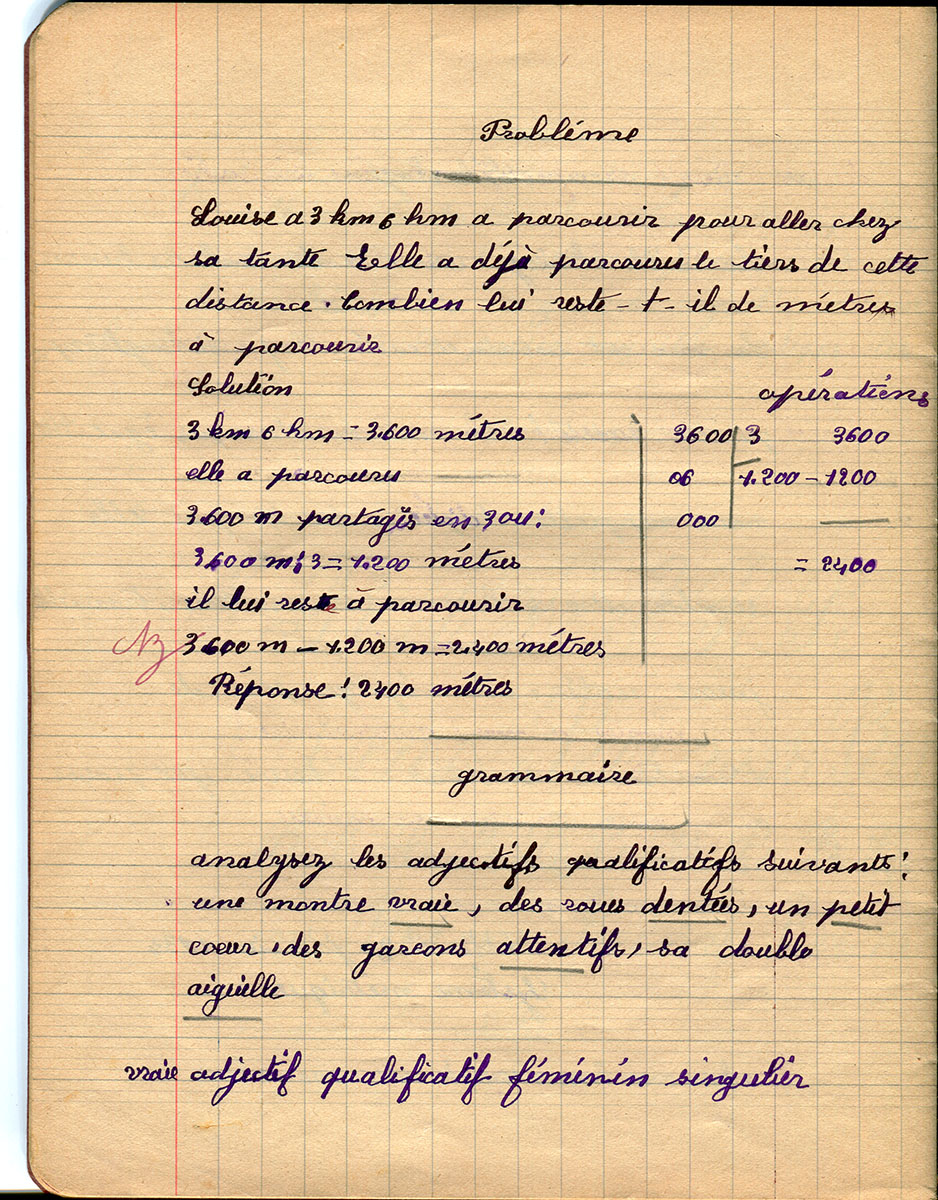 Probléme
Louise a 3 km 6 hm a parcourir pour aller chez
sa tante Elle a déjà parcouru le tiers de cette
distance. Combien lui reste-t-il de métres
à parcourir
Solution
opérations
3 km 6 hm = 3.600 métres
3600 3 3600
elle a parcouru
06 1.200 - 1200
3.600 m partagés en 3 ou :
000
3.600 m : 3 = 1.200 métres
= 2400
il lui reste à parcourir
3.600 m - 1.200 m = 2.400 métres
Réponse : 2400 métres
grammaire
analysez les adjectifs qualificatifs suivants :
une montre vraie, des roues dentées, un petit
coeur, des garcons attentifs, sa double
aiguille
vraie adjectif qualificatif féminin singulier